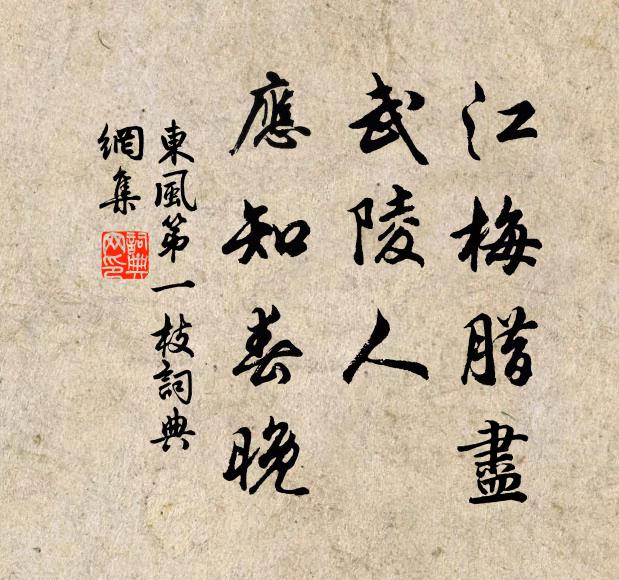 江梅腊盡
武陵人
應知春晚
東風第一枝詞典
網集
詞典
网印